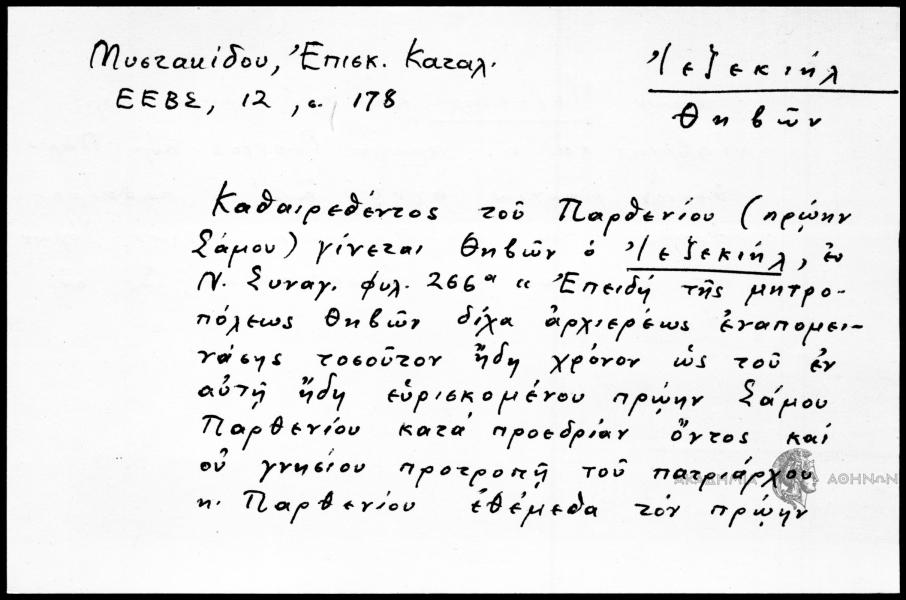 Μυστακίδου, Ἐπισκ. Καταλ.
ΕΕΒΣ, 12, σ. 178
Ἰεζεκιήλ
Θηβῶν
Καθαιρεθέντος τοῦ Παρθενίου (πρῴην
Σάμου) γίνεται Θηβῶν ὁ Ἰεζεκιήλ, ἐν
Ν. Συναγ. φυλ. 266α " Ἐπειδή τῆς μητρο-
πόλεως Θηβῶν δίχα ἀρχιερέως ἐναπομει-
νάσης τοσοῦτον ἤδη χρόνον ὡς τοῦ ἐν
αὐτῇ ἤδη εὑρισκομένου πρῴην Σάμου
Παρθενίου κατά προεδρίαν ὄντος καί
οὐ γνησίου προτροπῇ τοῦ πατριάρχου
κ. Παρθενίου ἐθέμεθα τόν πρῴην
ΑΚΑΔΗΜΙΑ ΑΘΗΝΩΝ